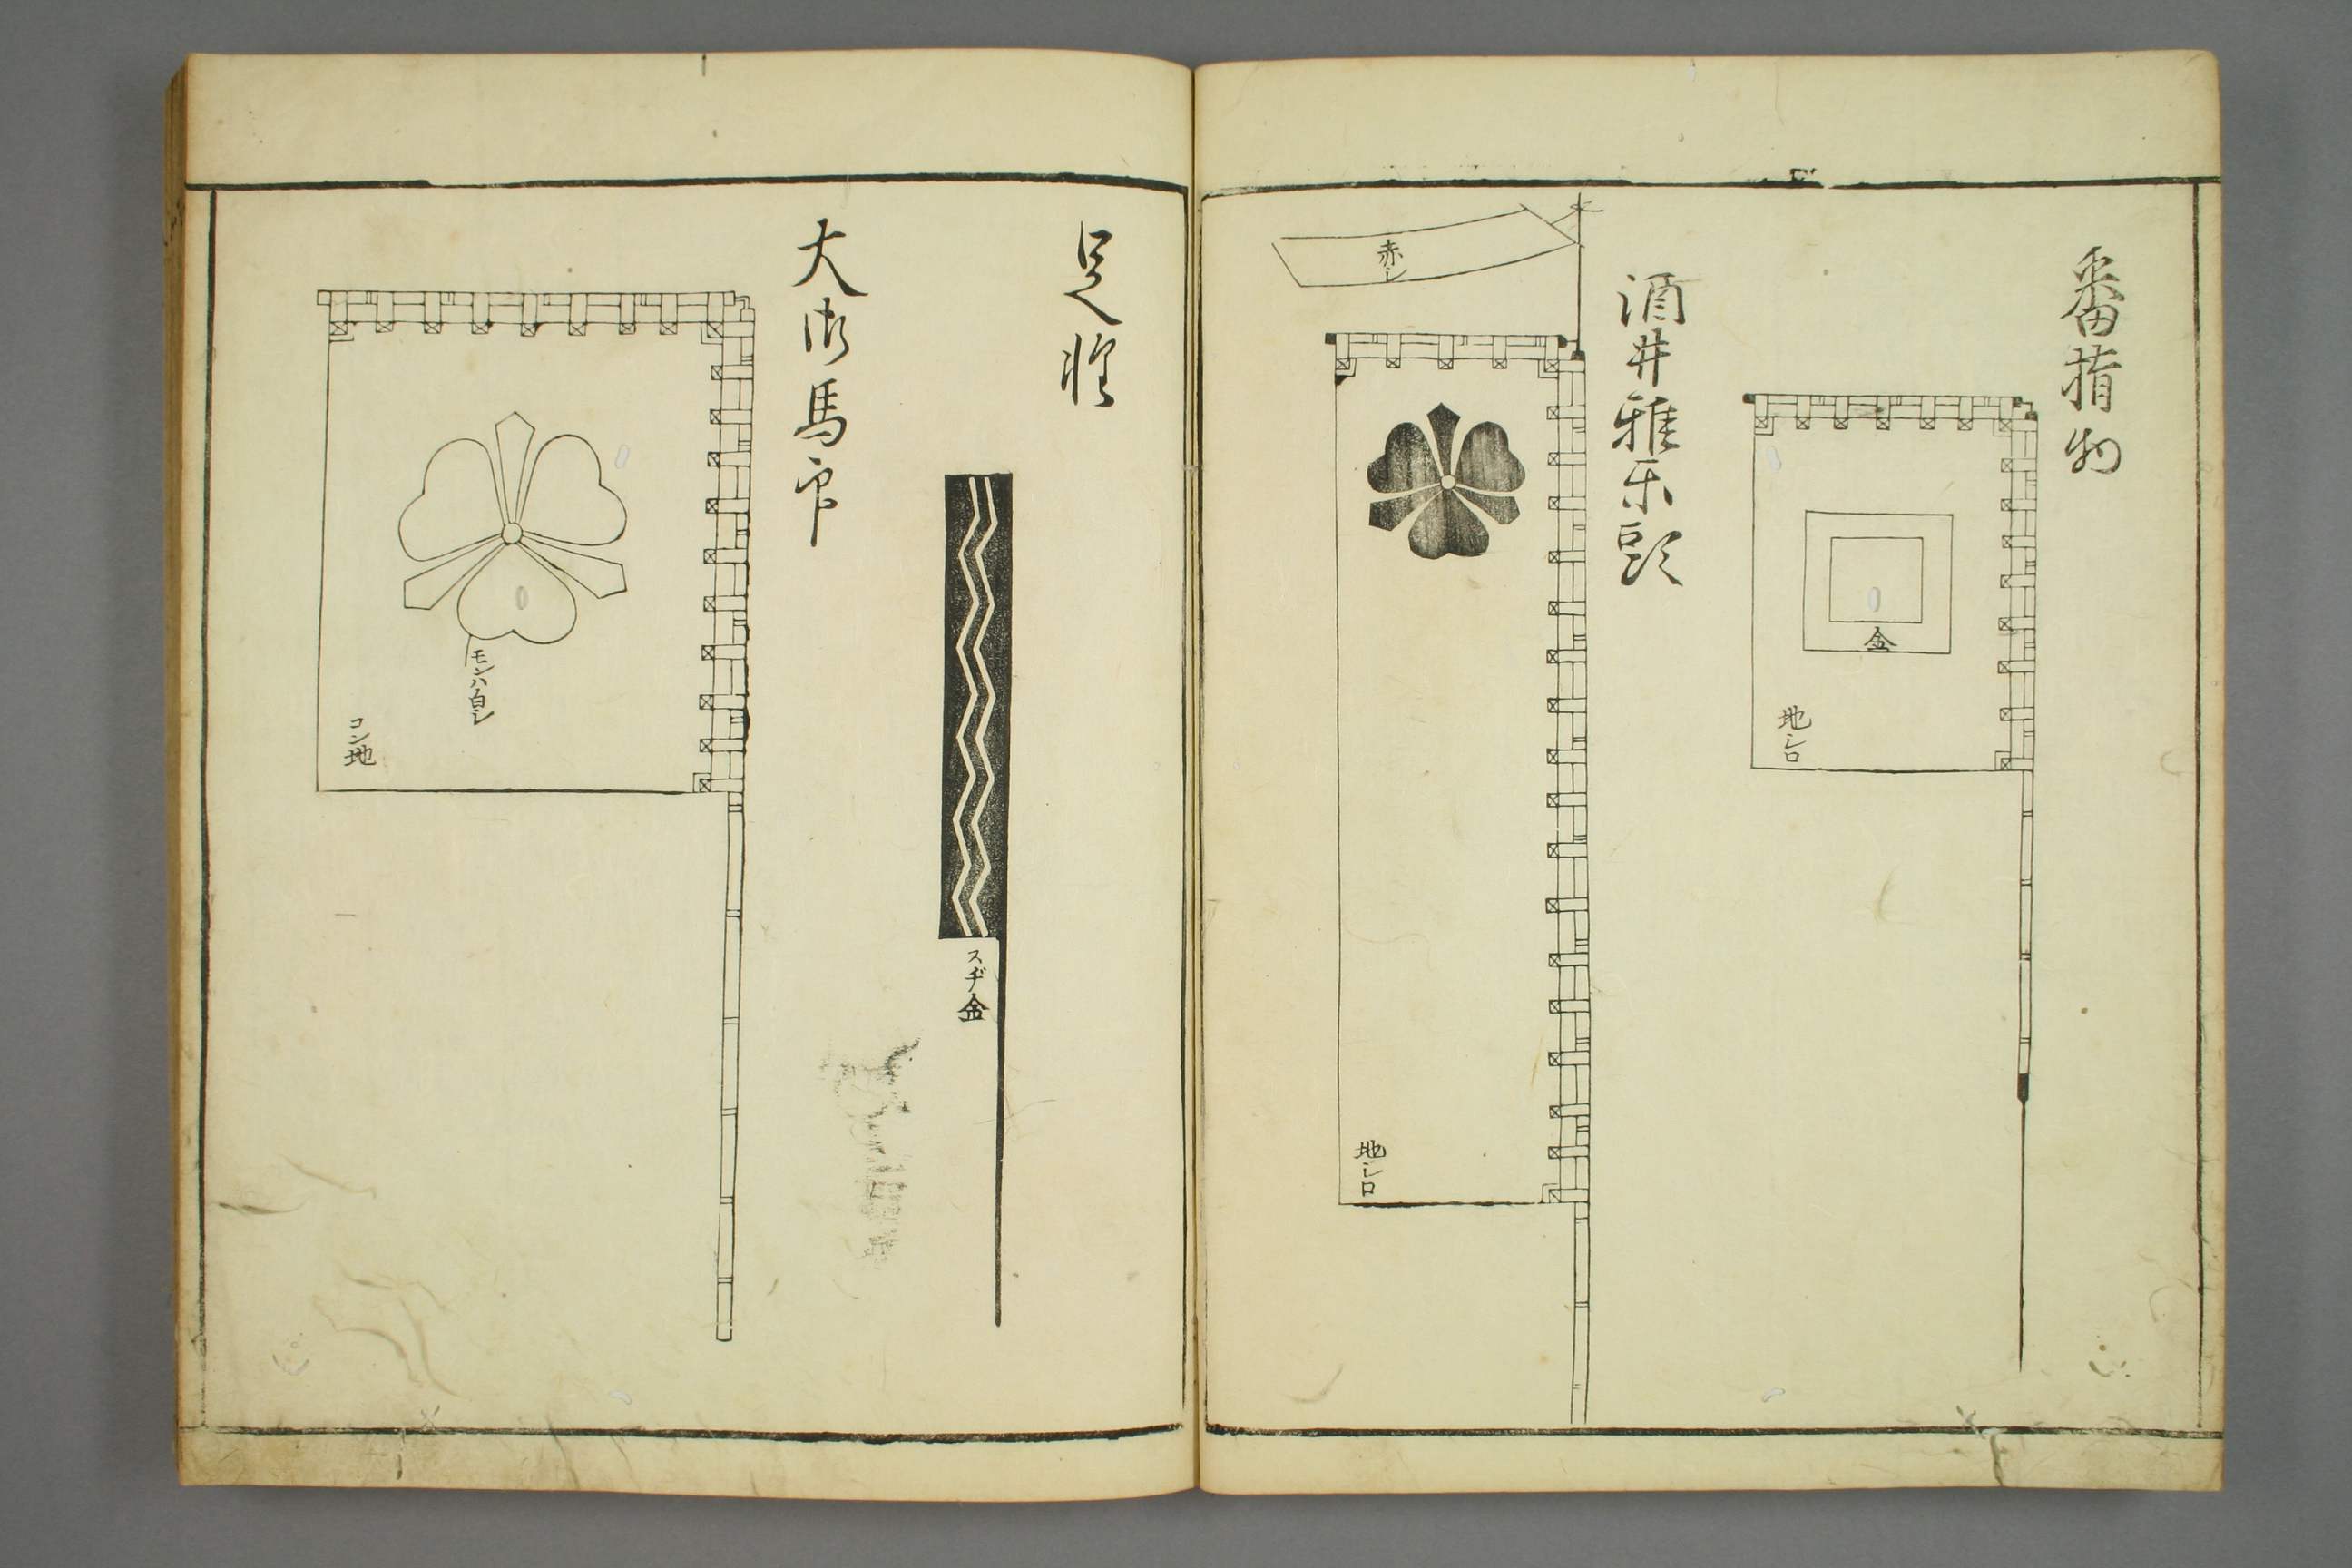 番指物
金
地シロ
酒井雅楽頭
赤シ
地シロ
足軽
スヂ金
大御馬印
モンハ白シ
コン地